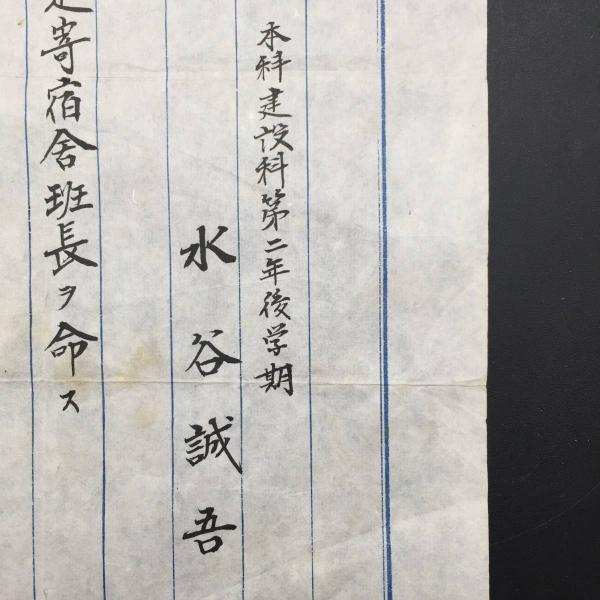 本科建設科第二年後学期
水谷誠吾
寄宿舍班長ヲ命ス